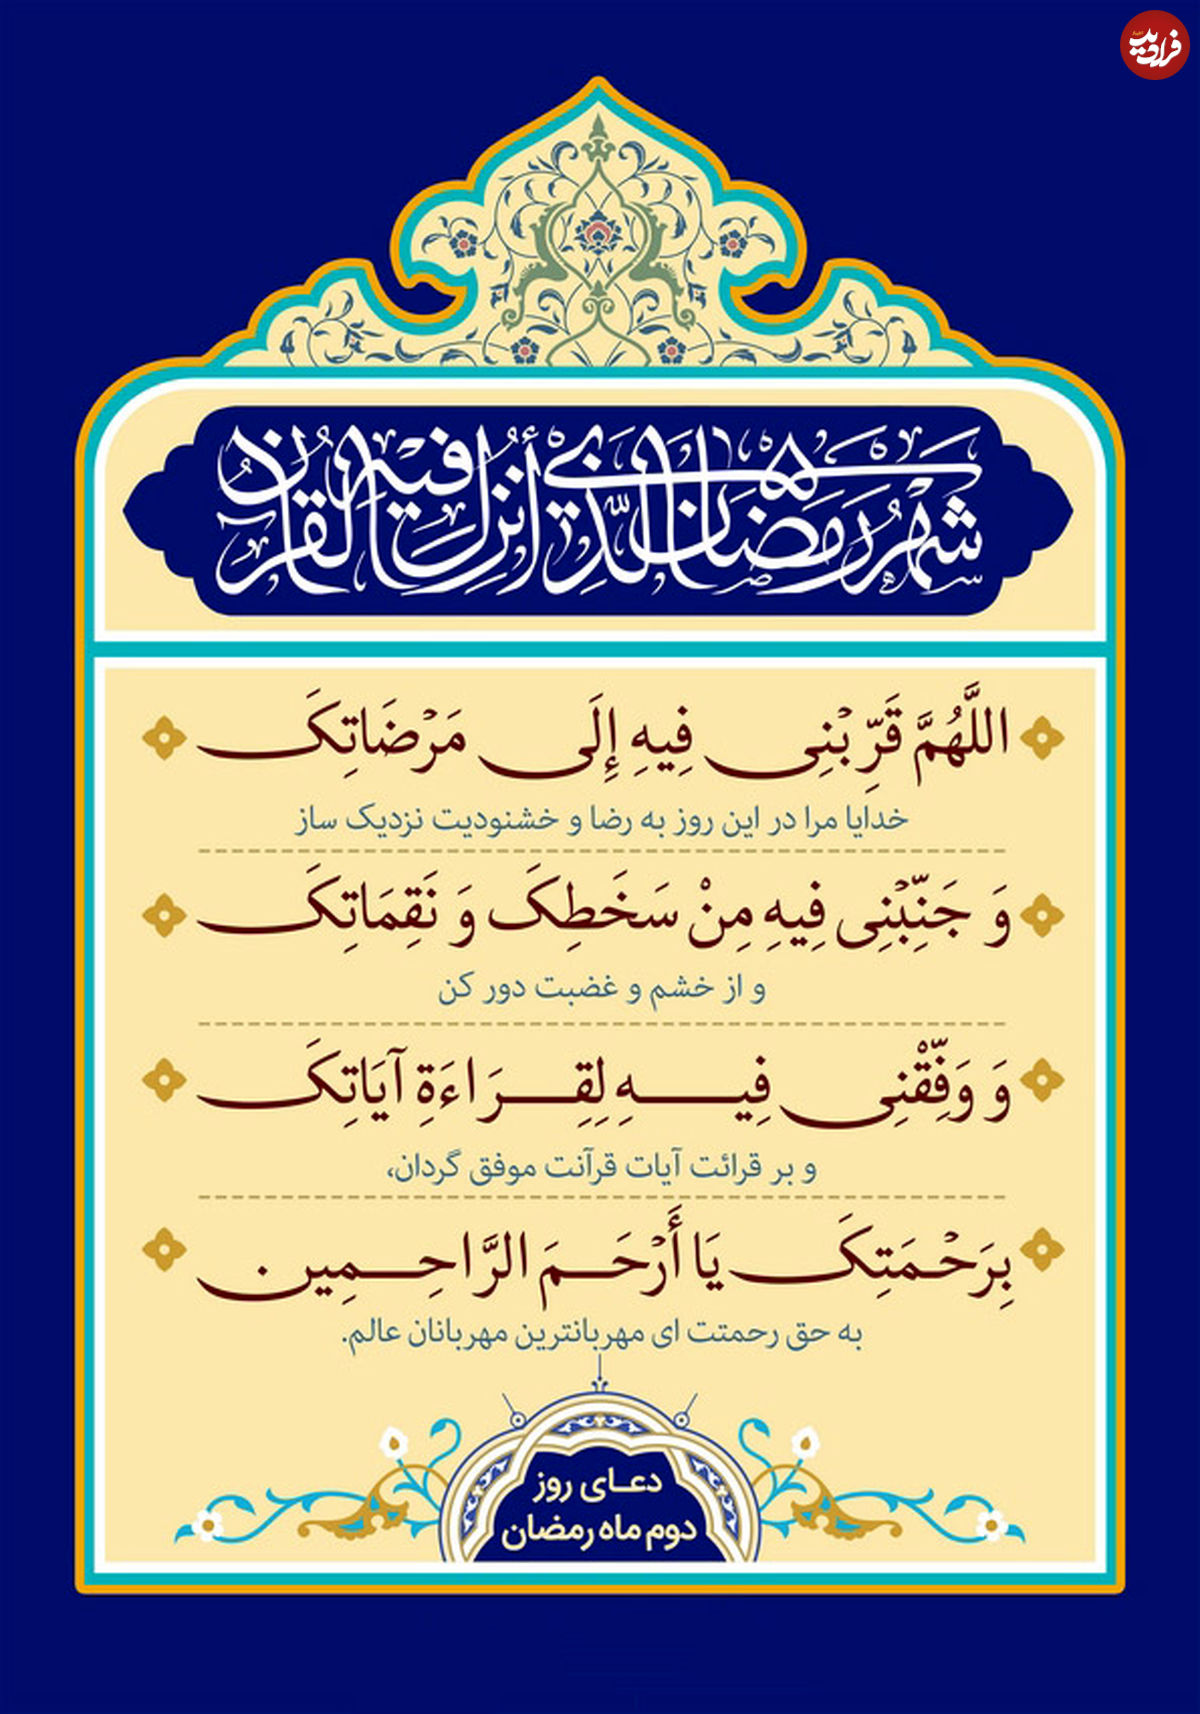 فرادید
شَهْرُ رَمَضَانَ الَّذِي أُنْزِلَ فِيهِ الْقُرْآنُ
اللَّهُمَّ قَرِّبْنِی فِیهِ إِلَی مَرْضَاتِکَ
خدایا مرا در این روز به رضا و خشنودیت نزدیک ساز
وَ جَنِّبْنِی فِیهِ مِنْ سَخَطِکَ وَ نَقِمَاتِکَ
و از خشم و غضبت دور کن
وَ وَفِّقْنِی فِیهِ لِقِرَاءَةِ آیَاتِکَ
و بر قرائت آیات قرآنت موفق گردان،
بِرَحْمَتِکَ یَا أَرْحَمَ الرَّاحِمِین
به حق رحمتت ای مهربانترین مهربانان عالم.
دعای روز
دوم ماه رمضان